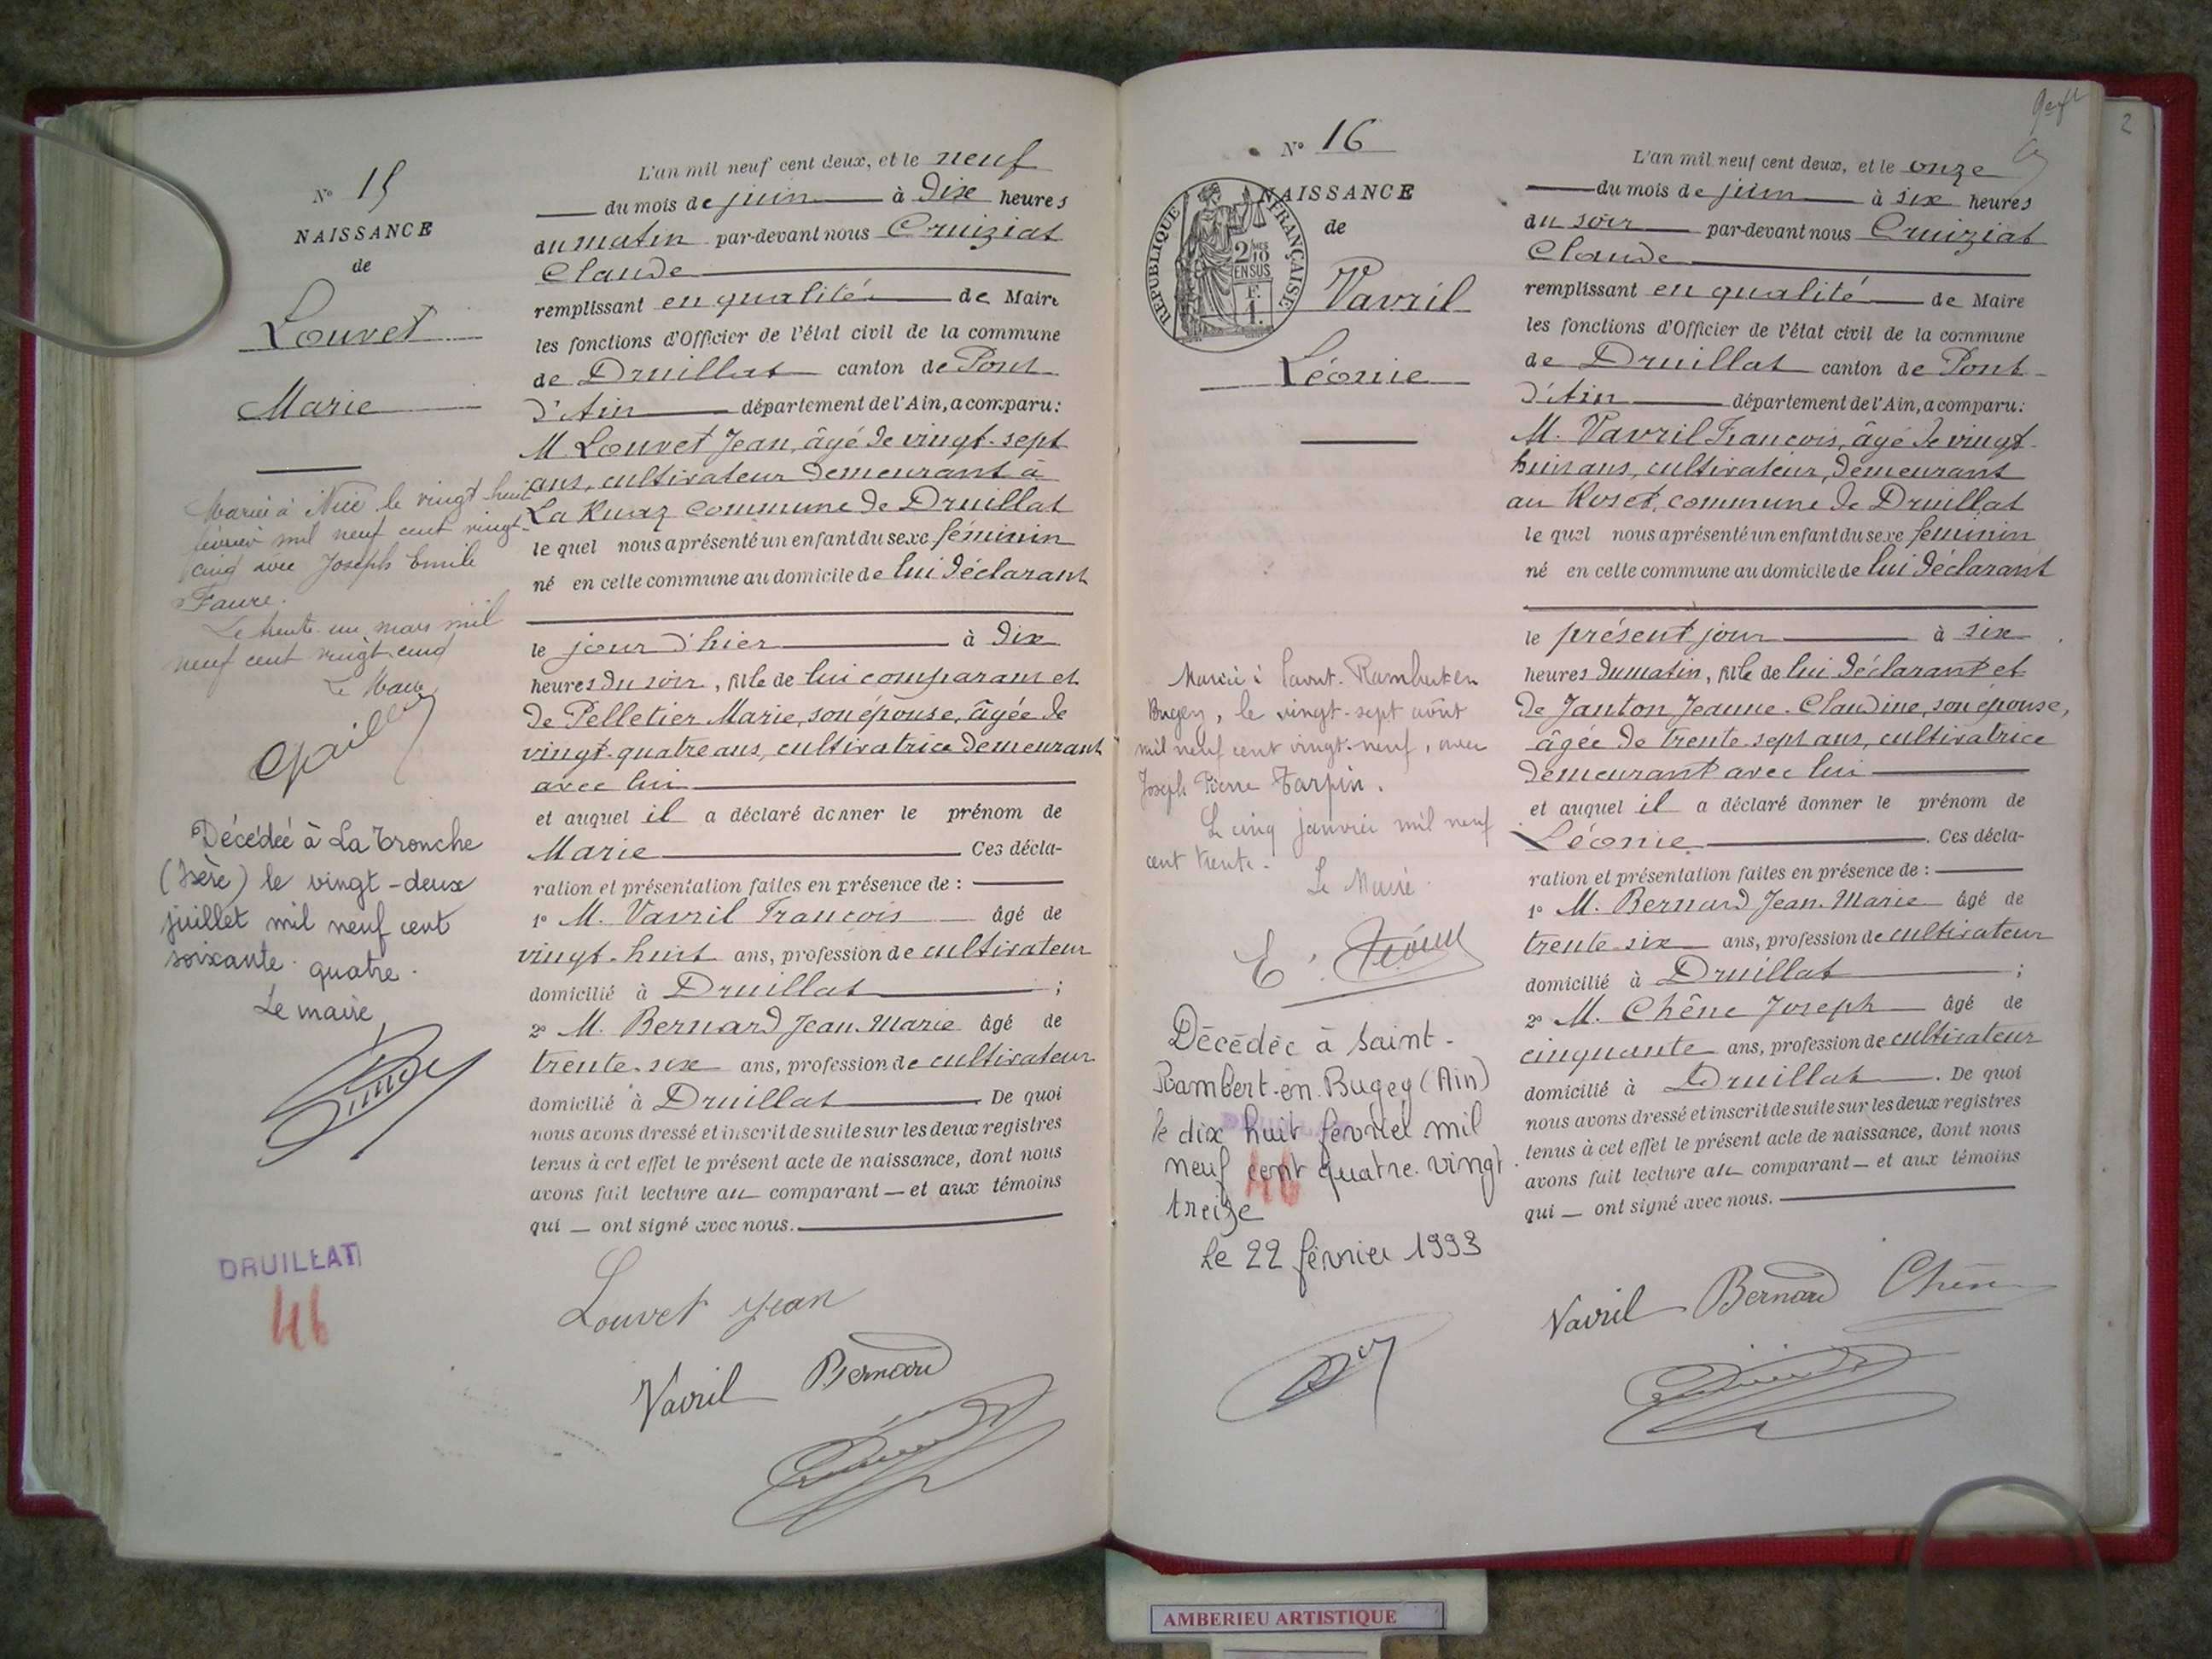 N° 15
NAISSANCE
de
Louvet
Marie
Mariée à Nice le vingt huit
février mil neuf cent vingt-
cinq avec Joseph Emile
Faure.
Le trente un mars mil
neuf cent vingt cinq
Le Maire
Décédée à La Tronche
(Isère) le vingt-deux
juillet mil neuf cent
soixante-quatre.
Le maire
DRUILLAT
46
L'an mil neuf cent deux, et le neuf
du mois de juin à dix heures
du matin par-devant nous Cruiziat
Claude
remplissant en qualité de Maire
les fonctions d'Officier de l'état civil de la commune
de Druillat canton de Pont-
d'Ain département de l'Ain, a comparu:
M. Louvet Jean, âgé de vingt-sept
ans, cultivateur demeurant à
La Ruaz commune de Druillat
le quel nous a présenté un enfant du sexe féminin
né en cette commune au domicile de lui déclarant
le jour d'hier à dix
heures du soir, fille de lui comparant et
de Pelletier Marie, son épouse, âgée de
vingt-quatre ans, cultivatrice demeurant
avec lui
et auquel il a déclaré donner le prénom de
Marie Ces décla-
ration et présentation faites en présence de :
1° M. Vavril François âgé de
vingt-huit ans, profession de cultivateur
domicilié à Druillat ;
2° M. Bernard Jean-Marie âgé de
trente-six ans, profession de cultivateur
domicilié à Druillat De quoi
nous avons dressé et inscrit de suite sur les deux registres
tenus à cet effet le présent acte de naissance, dont nous
avons fait lecture au comparant — et aux témoins
qui — ont signé avec nous.
Louvet Jean
Vavril Bernard
N° 16
NAISSANCE
de
RÉPUBLIQUE FRANÇAISE
2/10 EN SUS
F. 1.
Vavril
Léonie
Mariée à Saint-Rambert en
Bugey, le vingt-sept août
mil neuf cent vingt-neuf, avec
Joseph Pierre Tarpin.
Le cinq janvier mil neuf
cent trente.
Le Maire
Décédée à Saint-
Rambert-en-Bugey (Ain)
le dix huit février mil
neuf cent quatre-vingt-
treize
Le 22 février 1993
46
L'an mil neuf cent deux, et le onze
du mois de juin à six heures
du soir par-devant nous Cruiziat
Claude
remplissant en qualité de Maire
les fonctions d'Officier de l'état civil de la commune
de Druillat canton de Pont-
d'Ain département de l'Ain, a comparu:
M. Vavril François, âgé de vingt-
huit ans, cultivateur, demeurant
au Roset, commune de Druillat
le quel nous a présenté un enfant du sexe féminin
né en cette commune au domicile de lui déclarant
le présent jour à six
heures du matin, fille de lui déclarant et
de Janton Jeanne-Claudine, son épouse,
âgée de trente sept ans, cultivatrice
demeurant avec lui
et auquel il a déclaré donner le prénom de
Léonie. Ces décla-
ration et présentation faites en présence de :
1° M. Bernard Jean-Marie âgé de
trente-six ans, profession de cultivateur
domicilié à Druillat ;
2° M. Chêne Joseph âgé de
cinquante ans, profession de cultivateur
domicilié à Druillat. De quoi
nous avons dressé et inscrit de suite sur les deux registres
tenus à cet effet le présent acte de naissance, dont nous
avons fait lecture au comparant — et aux témoins
qui — ont signé avec nous.
Vavril Bernard Chêne
2
AMBERIEU ARTISTIQUE